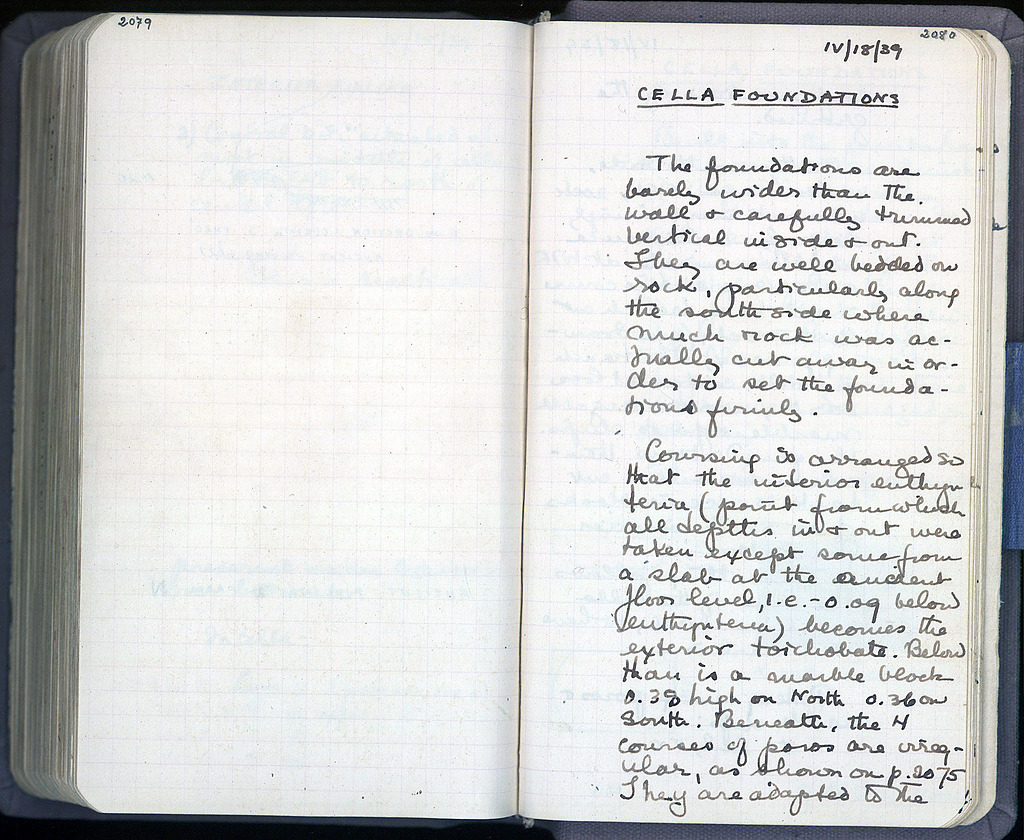 2079
2080
IV/18/39
CELLA FOUNDATIONS
The foundations are
barely wider than the
wall & carefully trimmed
vertical inside & out.
They are well bedded on
rock, particularly along
the south side where
much rock was ac-
tually cut away in or-
der to set the founda-
tions firmly.
Coursing is arranged so
that the interior euthyn
teria (point from which
all depths in & out were
taken except some from
a slab at the ancient
floor level, i.e. -0.09 below
euthynteria) becomes the
exterior toichobate. Below
than is a marble block
0.38 high on North 0.36 on
South. Beneath, the 4
courses of poros are irreg-
ular, as shown on p. 2075
They are adapted to the